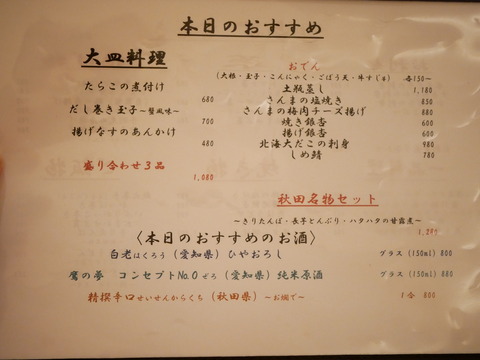 本日のおすすめ
大皿料理
たらこの煮付け
680
だし巻き玉子～蟹風味～
700
揚げなすのあんかけ
480
盛り合わせ3品
1,080
おでん
(大根・玉子・こんにゃく・ごぼう天・牛すじ) 各150～
土瓶蒸し 1,180
さんまの塩焼き 850
さんまの梅肉チーズ揚げ 880
焼き銀杏 600
揚げ銀杏 600
北海大だこの刺身 980
しめ鯖 780
秋田名物セット
～きりたんぽ・長芋とんぶり・ハタハタの甘露煮～
1,280
〈本日のおすすめのお酒〉
白老はくろう(愛知県)ひやおろし グラス(150ml) 800
鷹の夢 コンセプトNo.0ぜろ(愛知県)純米原酒 グラス(150ml) 880
精撰辛口せいせんからくち(秋田県)～お燗で～ 1合 800